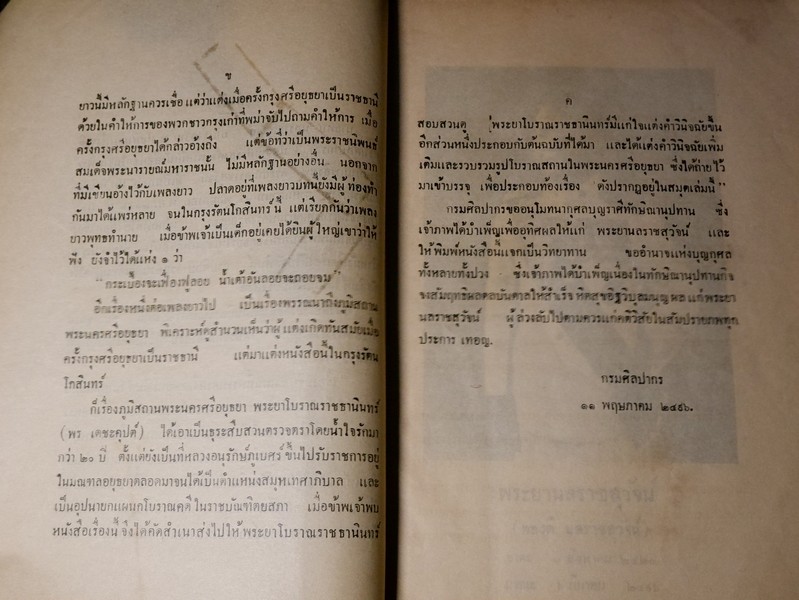 ข
ยาวนี้มีหลักฐานควรเชื่อ แต่ว่าแต่งเมื่อครั้งกรุงศรีอยุธยาเป็นราชธานี
ด้วยในคำให้การของพวกชาวกรุงเก่าที่พม่าจับไปถามคำให้การ เมื่อ
ครั้งกรุงศรีอยุธยาได้กล่าวอ้างถึง แต่ข้อที่ว่าเป็นพระราชนิพนธ์
สมเด็จพระนารายณ์มหาราชนั้น ไม่มีหลักฐานอย่างอื่น นอกจาก
ที่มีเขียนอ้างไว้กับเพลงยาว ปลาดอยู่ที่เพลงยาวบทนี้ยังมีผู้ท่องจำ
กันมาได้แพร่หลาย จนในกรุงรัตนโกสินทร์นี้ แต่เรียกกันว่าเพลง
ยาวพุทธทำนาย เมื่อข้าพเจ้าเป็นเด็กอยู่เคยได้ยินผู้ใหญ่เขาว่าให้
ฟัง ยังจำไว้ได้แห่ง ๑ ว่า
"กระเบื้องจะเฟื่องฟูลอย น้ำเต้าอันลอยจะถอยจม"
อีกเรื่องหนึ่งต่อเพลงยาวไป เป็นเรื่องพรรณนาถึงภูมิสถาน
พระนครศรีอยุธยา พิเคราะห์ดูสำนวนเห็นว่าผู้แต่งเกิดทันสมัยเมื่อ
ครั้งกรุงศรีอยุธยาเป็นราชธานี แต่มาแต่งหนังสือนี้ในกรุงรัตน
โกสินทร์
ก็เรื่องภูมิสถานพระนครศรีอยุธยา พระยาโบราณราชธานินทร์
(พร เดชะคุปต์) ได้เอาเป็นธุระสืบสวนตรวจตราโดยน้ำใจรักมา
กว่า ๒๐ ปี ตั้งแต่ยังเป็นที่หลวงอนุรักษ์ภูเบศร์ ขึ้นไปรับราชการอยู่
ในมณฑลอยุธยาตลอดมาจนได้เป็นตำแหน่งสมุหเทศาภิบาล และ
เป็นอุปนายกแผนกโบราณคดีในราชบัณฑิตยสภา เมื่อข้าพเจ้าพบ
หนังสือเรื่องนี้ จึงได้คัดสำเนาส่งไปให้พระยาโบราณราชธานินทร์
ค
สอบสวนดู พระยาโบราณราชธานินทร์มีแก่ใจแต่งคำวินิจฉัยขึ้น
อีกส่วนหนึ่งประกอบกับต้นฉบับที่ได้มา และได้แต่งคำวินิจฉัยเพิ่ม
เติมและรวบรวมรูปโบราณสถานในพระนครศรีอยุธยา ซึ่งได้ถ่ายไว้
มาเข้าบรรจุ เพื่อประกอบท้องเรื่อง ดังปรากฏอยู่ในสมุดเล่มนี้"
กรมศิลปากรขออนุโมทนากุศลบุญราศีทักษิณานุปทาน ซึ่ง
เจ้าภาพได้บำเพ็ญเพื่ออุทิศผลให้แก่ พระยานลราชสุวัจน์ และ
ให้พิมพ์หนังสือนี้แจกเป็นวิทยาทาน ขออำนาจแห่งบุญกุศล
ทั้งหลายทั้งปวง ซึ่งเจ้าภาพได้บำเพ็ญเนื่องในทักษิณานุปทานกิจ
จงสัมฤทธิผลดลบันดาลให้สำเร็จหิตสุขอิฐวิบูลมนุญผล แก่พระยา
นลราชสุวัจน์ ผู้ล่วงลับไปตามควรแก่คติวิสัยในสัมปรายภพทุก
ประการ เทอญ.
กรมศิลปากร
๑๑ พฤษภาคม ๒๔๙๖.